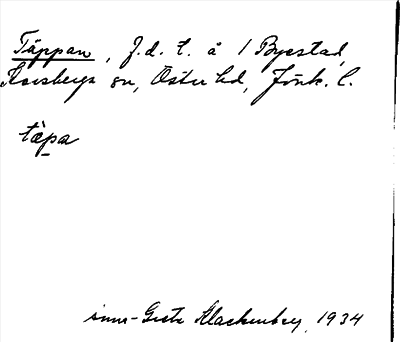 Täppan, f.d. t. å 1 Byestad,
Korsberga sn, Östra hd, Jönk. l.
täpa
Greta Klackenberg, 1934